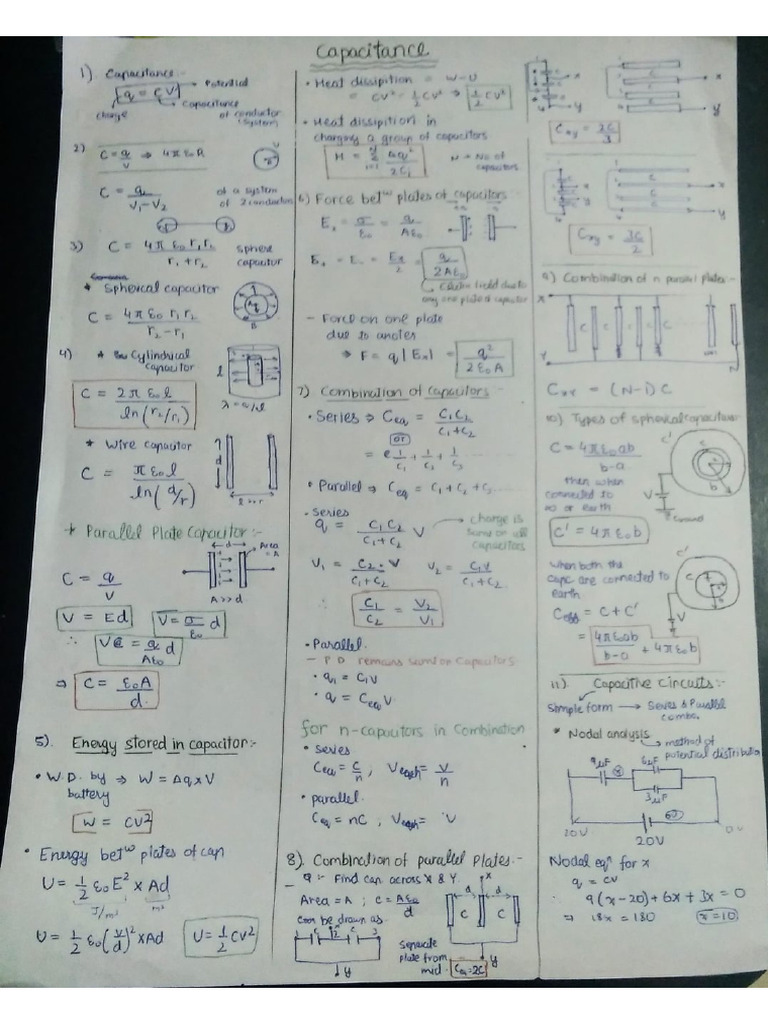 Capacitance
1) Capacitance:-
q = CV
Potential
charge
Capacitance of conductor (system)
2) C = q/V ⇒ 4πε₀R
C = q/(V₁-V₂) of a system of 2 conductors
3) C = 4πε₀r₁r₂/(r₁+r₂) sphere capacitor
* Spherical capacitor
C = 4πε₀r₁r₂/(r₂-r₁)
4) * Cylindrical capacitor
C = 2πε₀l/ln(r₂/r₁)
λ = q/l
* Wire capacitor
C = πε₀l/ln(d/r)
l >> r
* Parallel Plate Capacitor:-
Area = A
C = q/V
A >> d
V = Ed
V = σ/ε₀ d
∴ V = q/Aε₀ d
⇒ C = ε₀A/d
5). Energy stored in capacitor:-
• W.D. by battery ⇒ W = Δq × V
W = CV²
• Energy betw plates of cap
U = 1/2 ε₀E² × Ad
J/m³ m³
U = 1/2 ε₀(V/d)² × Ad
U = 1/2 CV²
• Heat dissipition = W-U
= CV² - 1/2 CV² ⇒ 1/2 CV²
• Heat dissipition in charging a group of capacitors
N → No of capacitors
6) Force betw plates of capacitors
E = σ/ε₀ = q/Aε₀
q/2Aε₀
Electric field due to any one plate of capacitor
- Force on one plate due to anoter
⇒ F = q|E| = q²/2ε₀A
7) Combination of capacitors:-
• Series ⇒ Ceq = C₁C₂/(C₁+C₂)
or
= 1/C₁ + 1/C₂ + 1/C₃
• Parallel ⇒ Ceq = C₁+C₂+C₃
• Series
q = C₁C₂/(C₁+C₂) V → charge is same on all capacitors
V₁ = C₂·V/(C₁+C₂) V₂ = C₁V/(C₁+C₂)
∴ C₁/C₂ = V₂/V₁
• Parallel
- P.D remains same on Capacitors
• q₁ = C₁V
• q = CeqV
for n-capacitors in Combination
• series
Ceq = C/n ; Veach = V/n
• parallel.
Ceq = nC , Veach = V
8). Combination of parallel Plates.-
- Q:- Find cap. across X & Y.
Area = A ; C = Aε₀/d
can be drawn as
Seperate plate from mid.
Ceq = 2C
Cxy = 2C/3
Cxy = 3C/2
9) Combination of n parallel plates:-
Cxy = (N-1)C
10) Types of spherical capacitors:-
C = 4πε₀ab/(b-a)
then when connected to ∞ or earth
Ground
C' = 4πε₀b
when both the cap. are connected to earth
= C + C'
= 4πε₀ab/(b-a) + 4πε₀b
11). Capacitive circuits:-
Simple form → Series & Parallel combo.
* Nodal analysis
→ method of potential distribution
9μF x 6μF
3μF
20V 0V
20V
Nodal eqn for x
q = CV
9(x-20) + 6x + 3x = 0
⇒ 18x = 180 x = 10